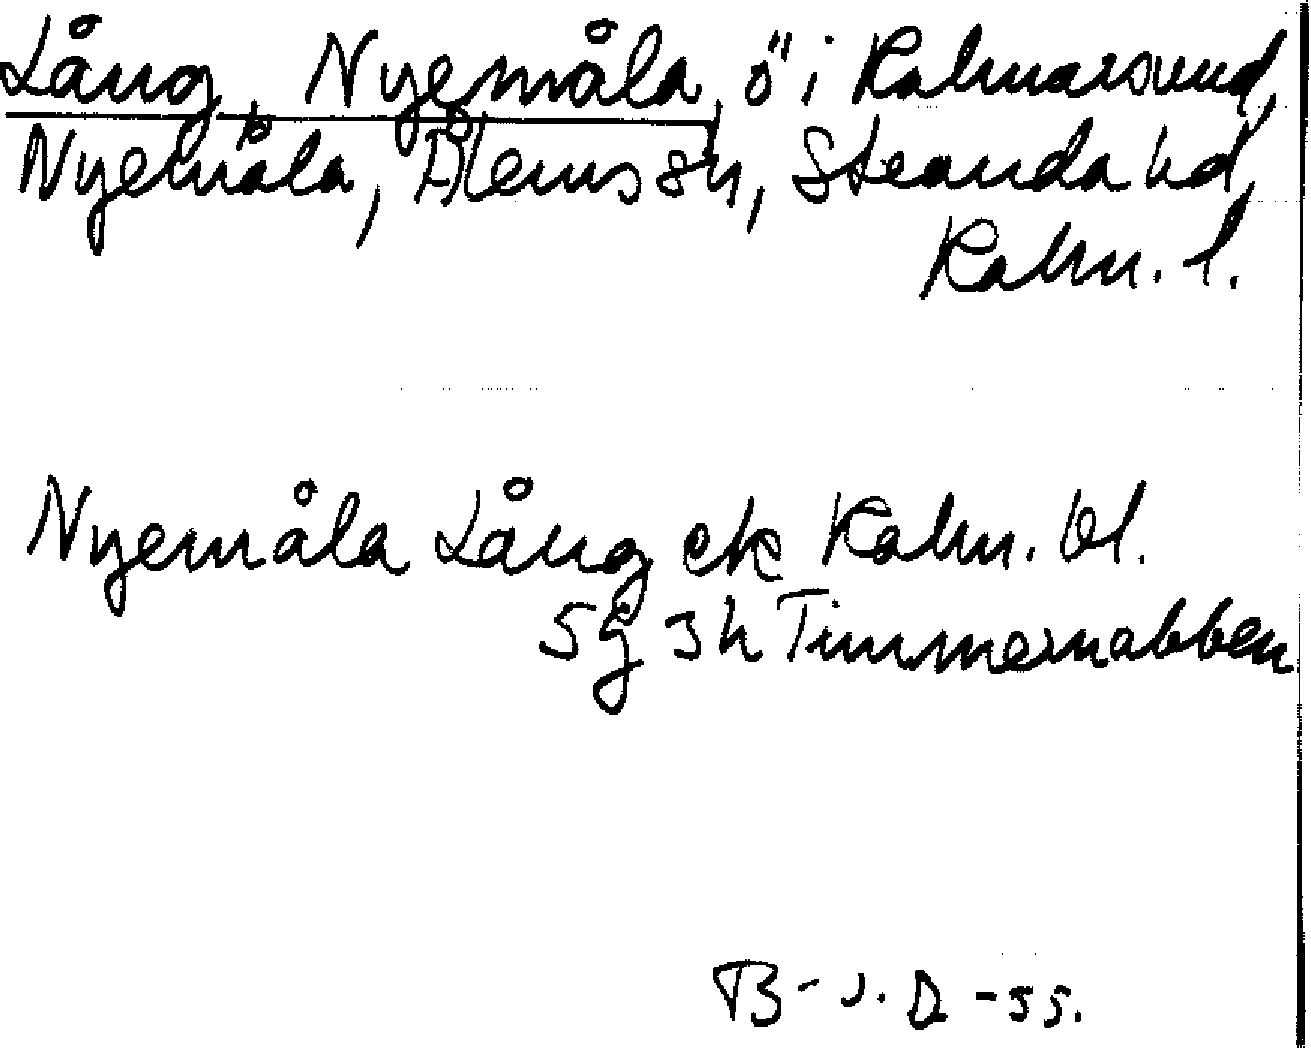 Lång, Nyemåla, ö i Kalmarsund,
Nyemåla, Ålems sn, Stranda hd,
Kalm. l.
Nyemåla Lång ek Kalm. bl.
5g 3h Timmernabben
B-J.D -55.